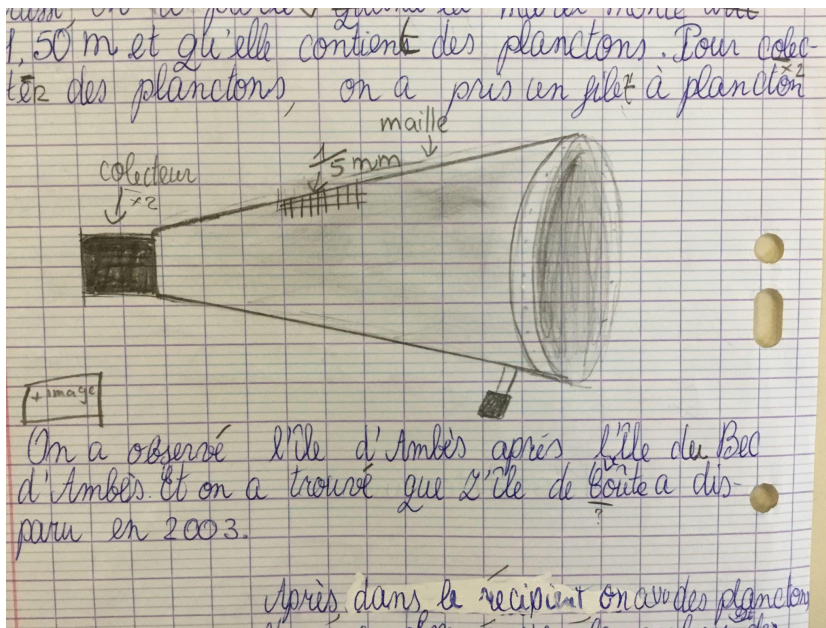 1,50 m et qu'elle contient des planctons. Pour colec-
ter des planctons, on a pris un filet à plancton
×2
maille
1/5 mm
colecteur
×2
+ image
On a observé l'île d'Ambès après l'île du Bec
d'Ambès. Et on a trouvé que l'île de a dis-
?
paru en 2003.
Après dans le récipient on avu des planctons